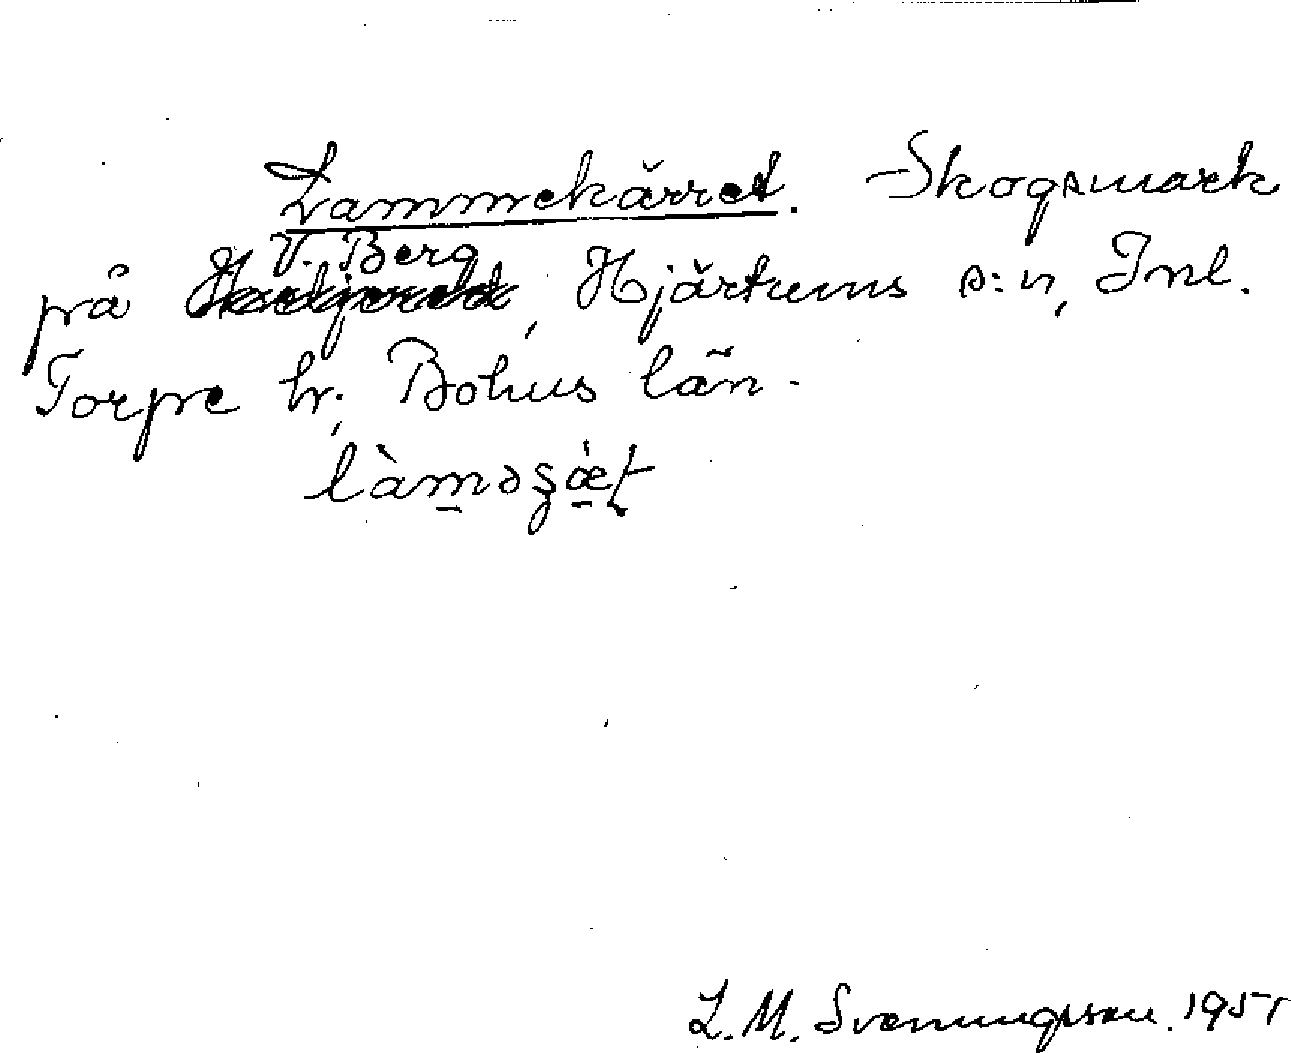 Lammekärret. Skogsmark
V. Berg
på, Hjärtums s:n, Inl.
Torpe hr., Bohus län.
làməʂǽt
L. M. Svenungsson. 1951